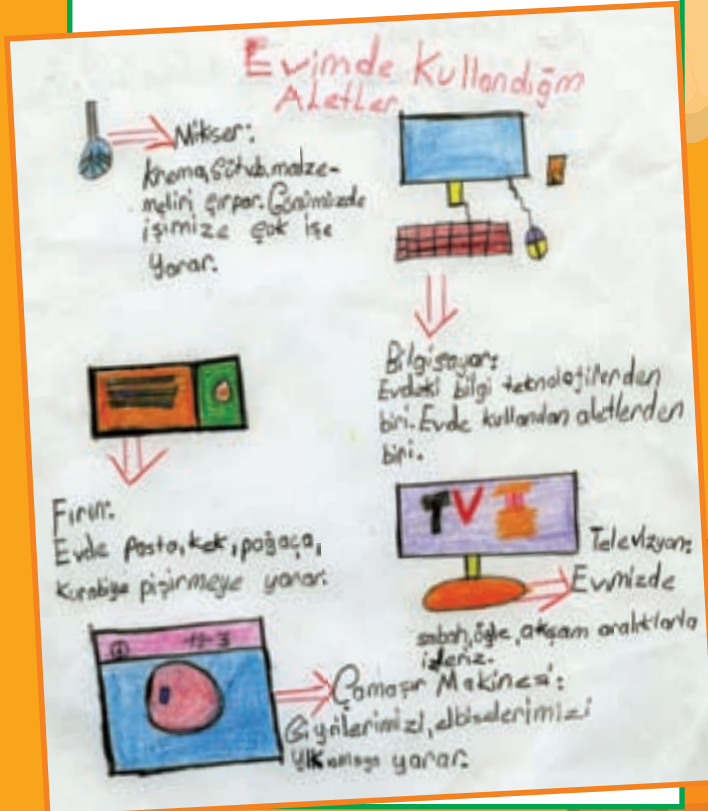 Evimde Kullandığm
Aletler
Mikser:
krema, sütvb. malze-
meliri çırpar. Günimizde
işimize çok işe
yarar.
Bilgisayar:
Evdeki bilgi teknolojilerden
biri. Evde kullanılan aletlerden
biri.
Fırın:
Evde pasta, kek, poğaça,
kurabiye pişirmeye yarar.
TV
Televizyon:
Evimizde
sabah, öğle, akşam aralıklarla
izleriz.
Çamaşır Makinesi:
elbiselerimizi
yıkamaya yarar.